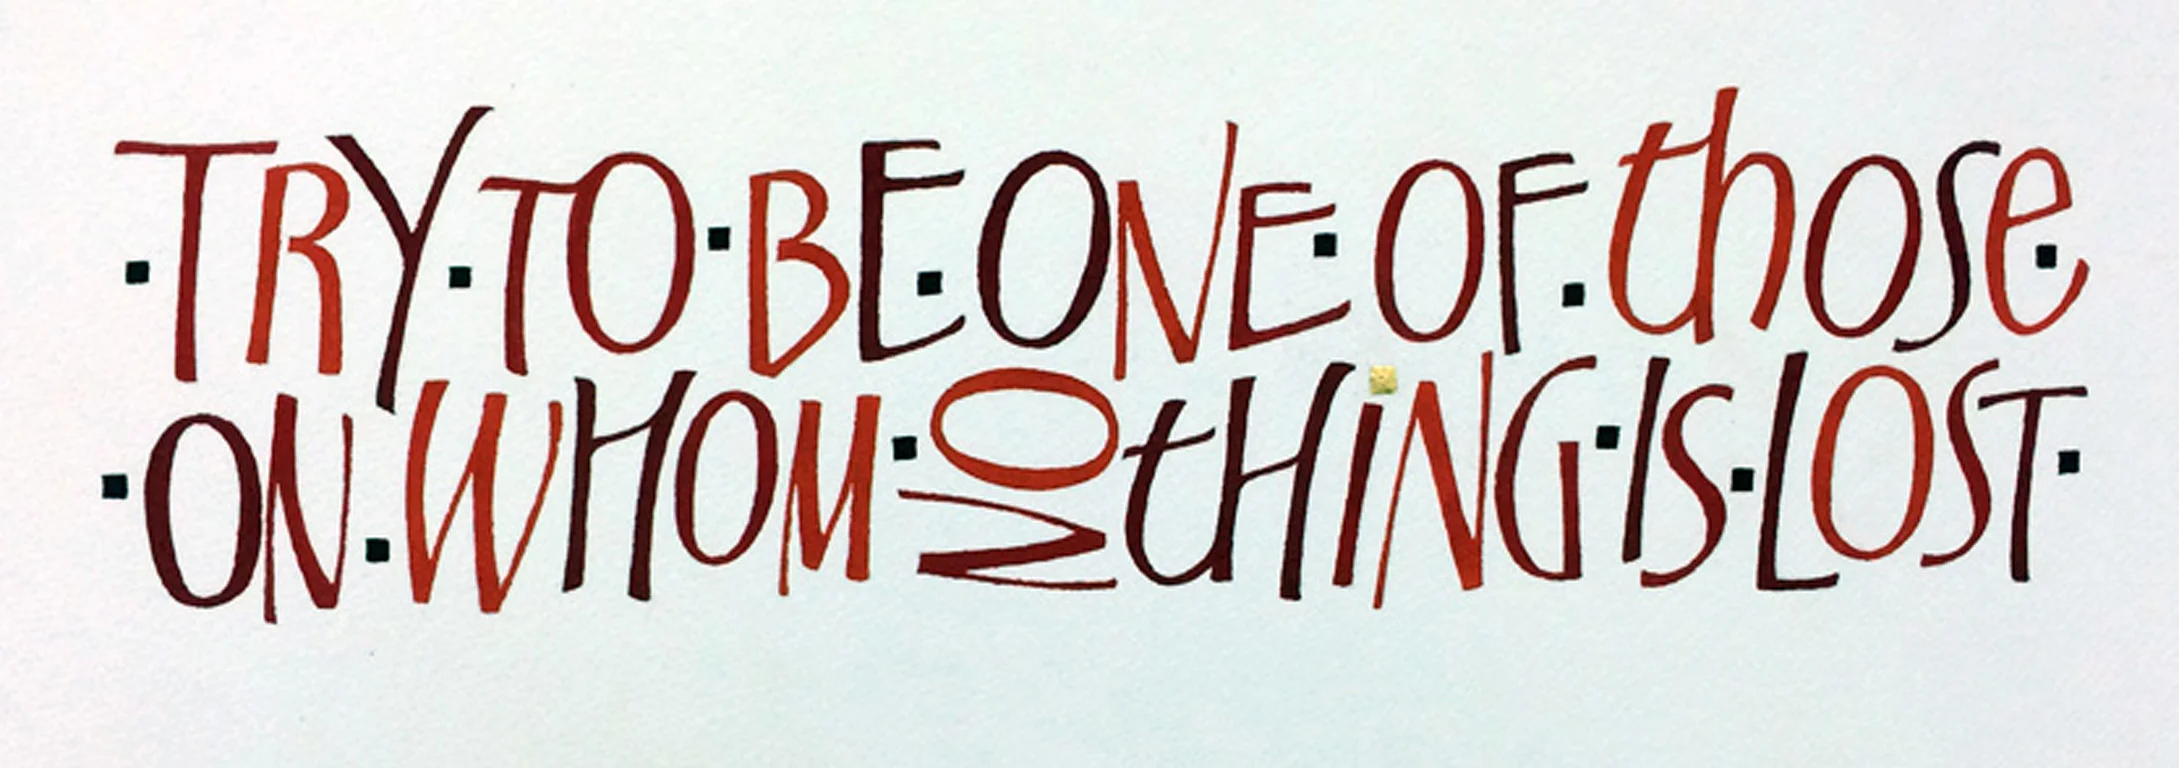 ·TRY·TO·BE·ONE·OF·those·
·ON·WHOM·NOtHiNG·IS·LOST·